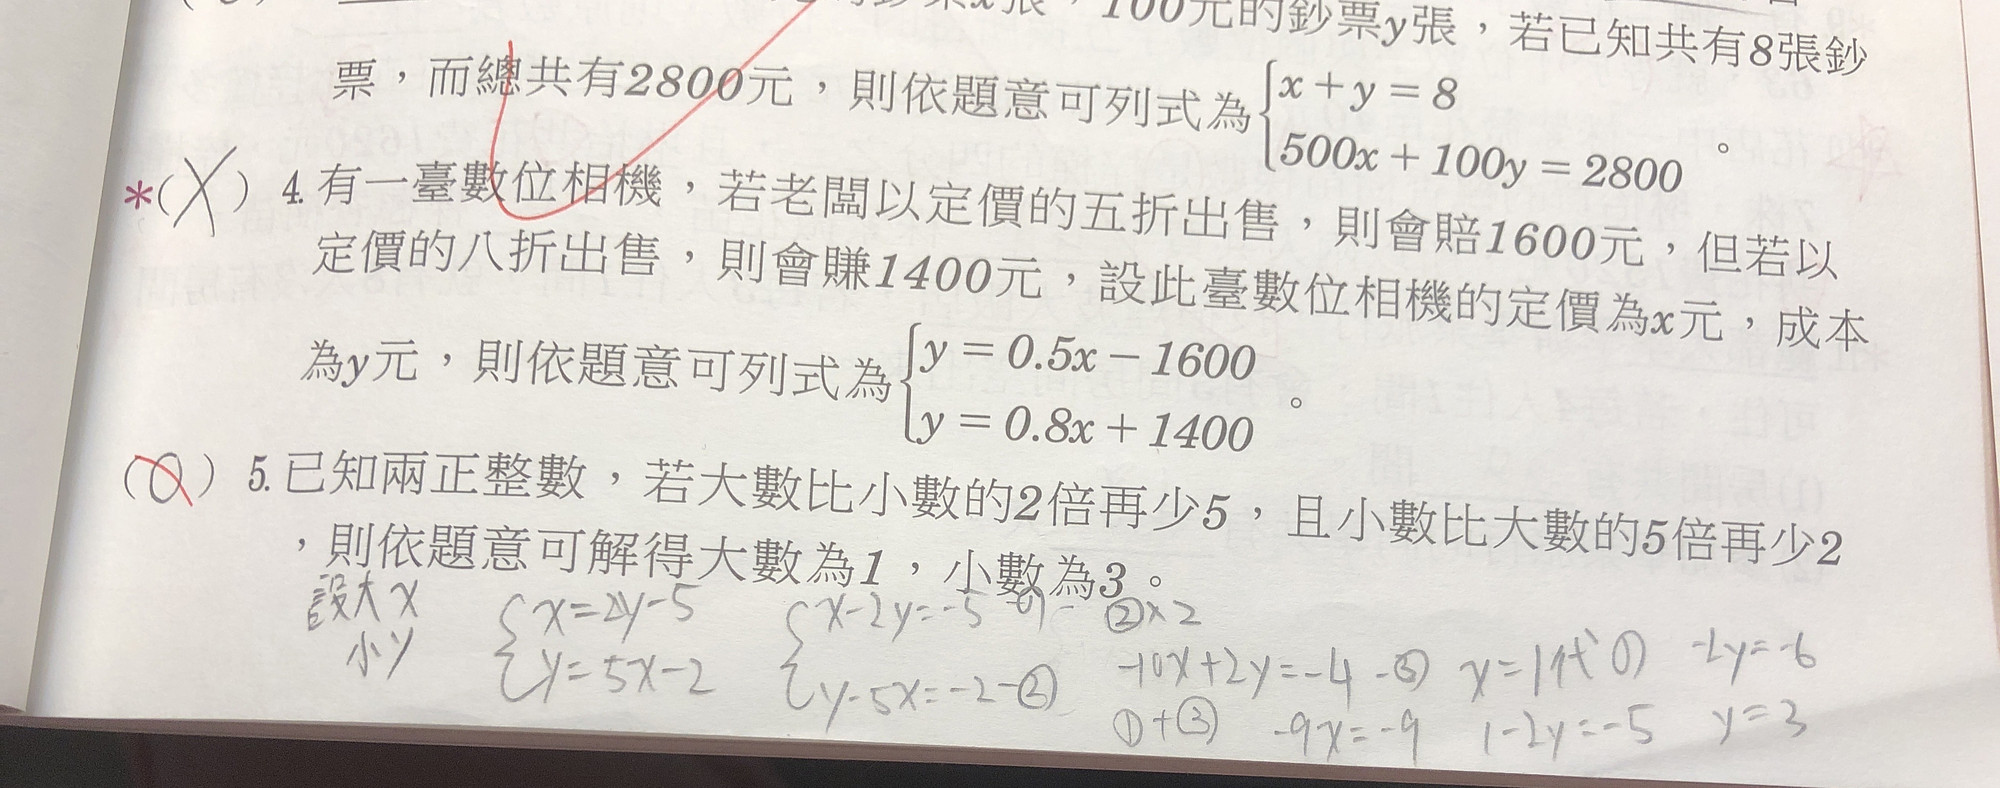 x張,100元的鈔票y張,若已知共有8張鈔
票,而總共有2800元,則依題意可列式為{x+y=8
500x+100y=2800。
*(X)4.有一臺數位相機,若老闆以定價的五折出售,則會賠1600元,但若以
定價的八折出售,則會賺1400元,設此臺數位相機的定價為x元,成本
為y元,則依題意可列式為{y=0.5x-1600
y=0.8x+1400。
(O)5.已知兩正整數,若大數比小數的2倍再少5,且小數比大數的5倍再少2
,則依題意可解得大數為1,小數為3。
設大x
小y
{x=2y-5
y=5x-2
{x-2y=-5-①
y-5x=-2-②
②×2
-10x+2y=-4-③
①+③ -9x=-9
x=1代①
1-2y=-5
-2y=-6
y=3